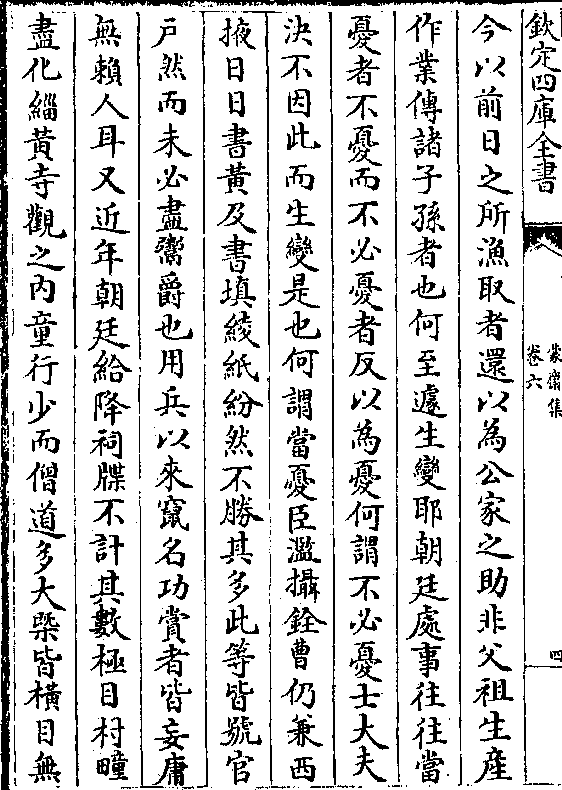 欽定四庫全書
蒙齋集
卷六
四
今以前日之所漁取者還以為公家之助非父祖生產
作業傳諸子孫者也何至遽生變耶朝廷處事往往當
憂者不憂而不必憂者反以為憂何謂不必憂士大夫
決不因此而生變是也何謂當憂臣濫攝銓曹仍兼西
掖日日書黃及書填綾紙紛然不勝其多此等皆號官
戶然而未必盡鬻爵也用兵以來竄名功賞者皆妄庸
無賴人耳又近年朝廷給降祠牒不計其數極目村疃
盡化緇黃寺觀之內童行少而僧道多大槩皆橫目無